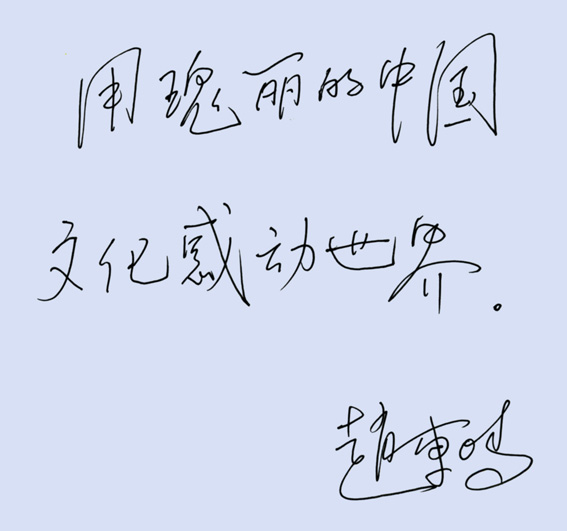 用瑰丽的中国
文化感动世界。
趙東